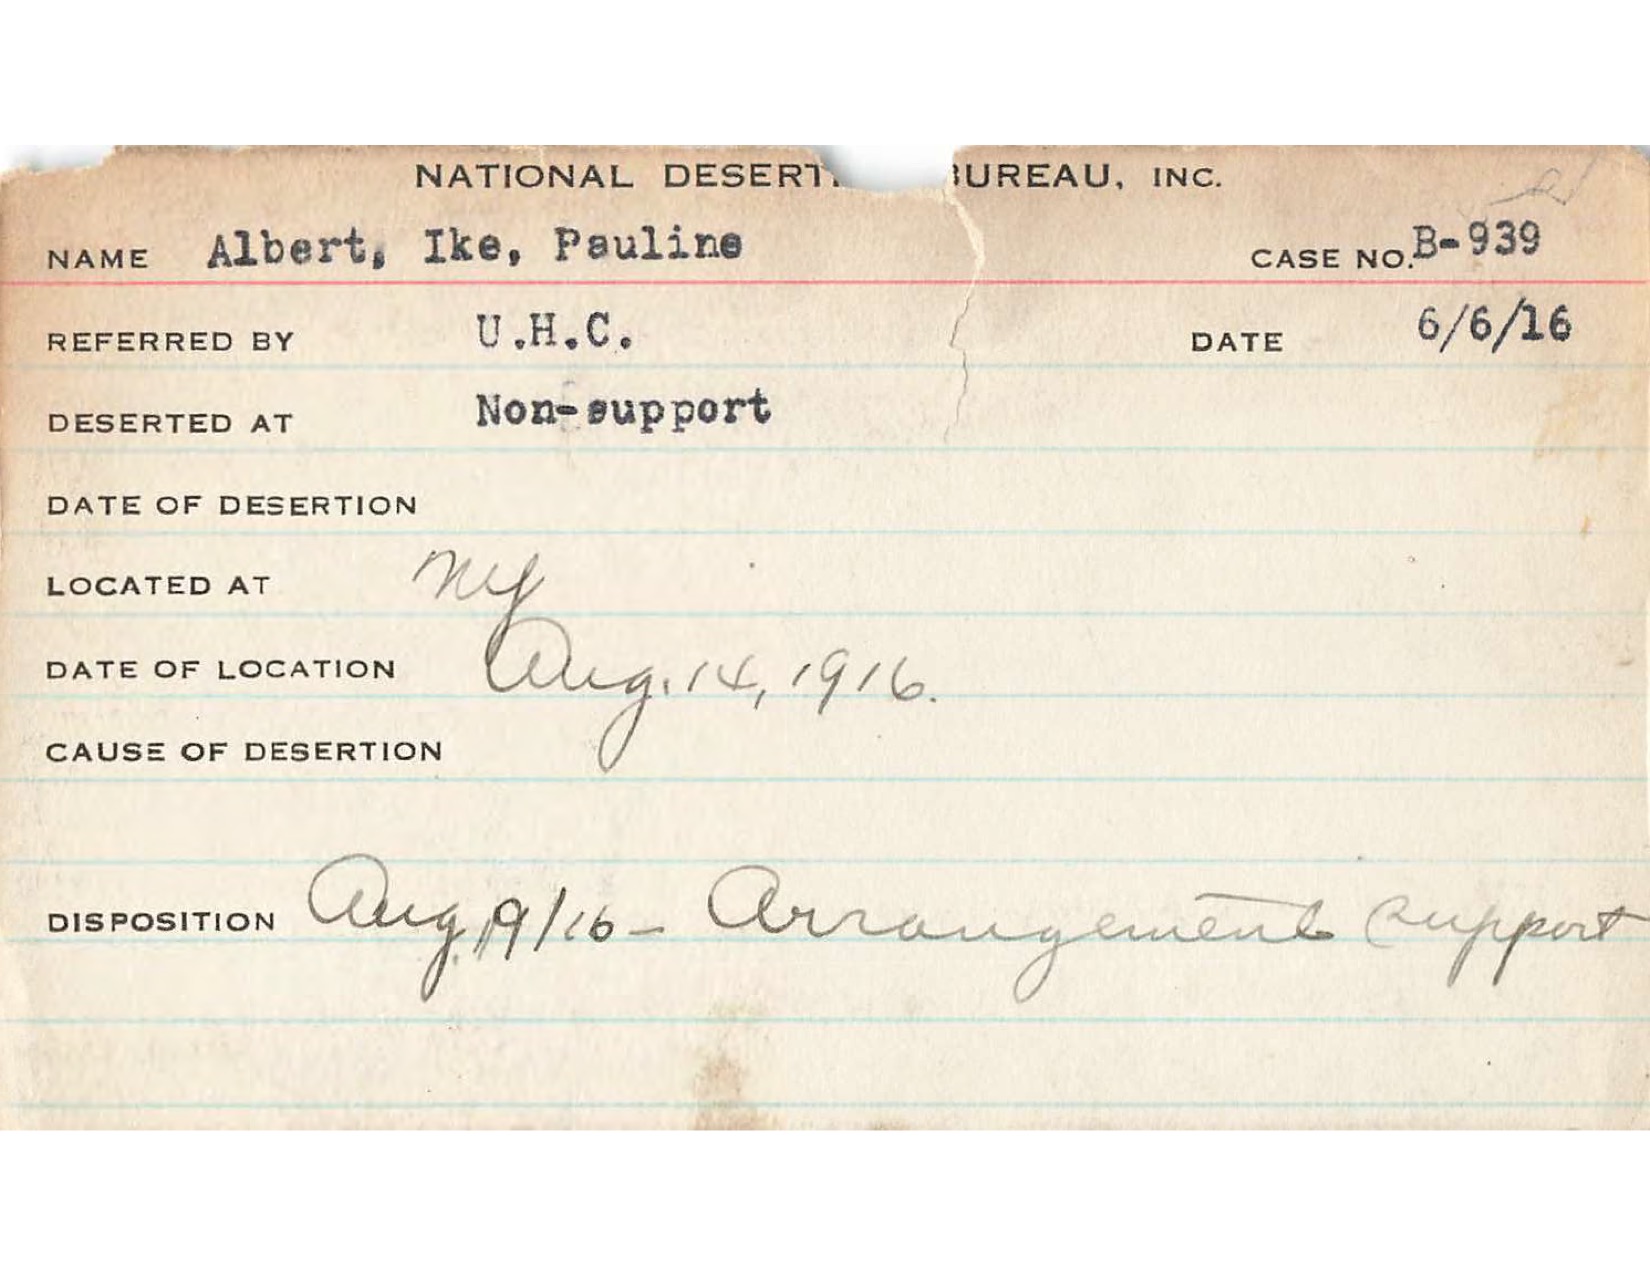 NATIONAL DESERT BUREAU, INC.
NAME Albert, Ike, Pauline CASE NO. B-939
REFERRED BY U.H.C. DATE 6/6/16
DESERTED AT Non-support
DATE OF DESERTION
LOCATED AT NY
DATE OF LOCATION Aug. 14, 1916.
CAUSE OF DESERTION
DISPOSITION Aug. 19/16 - Arrangement support